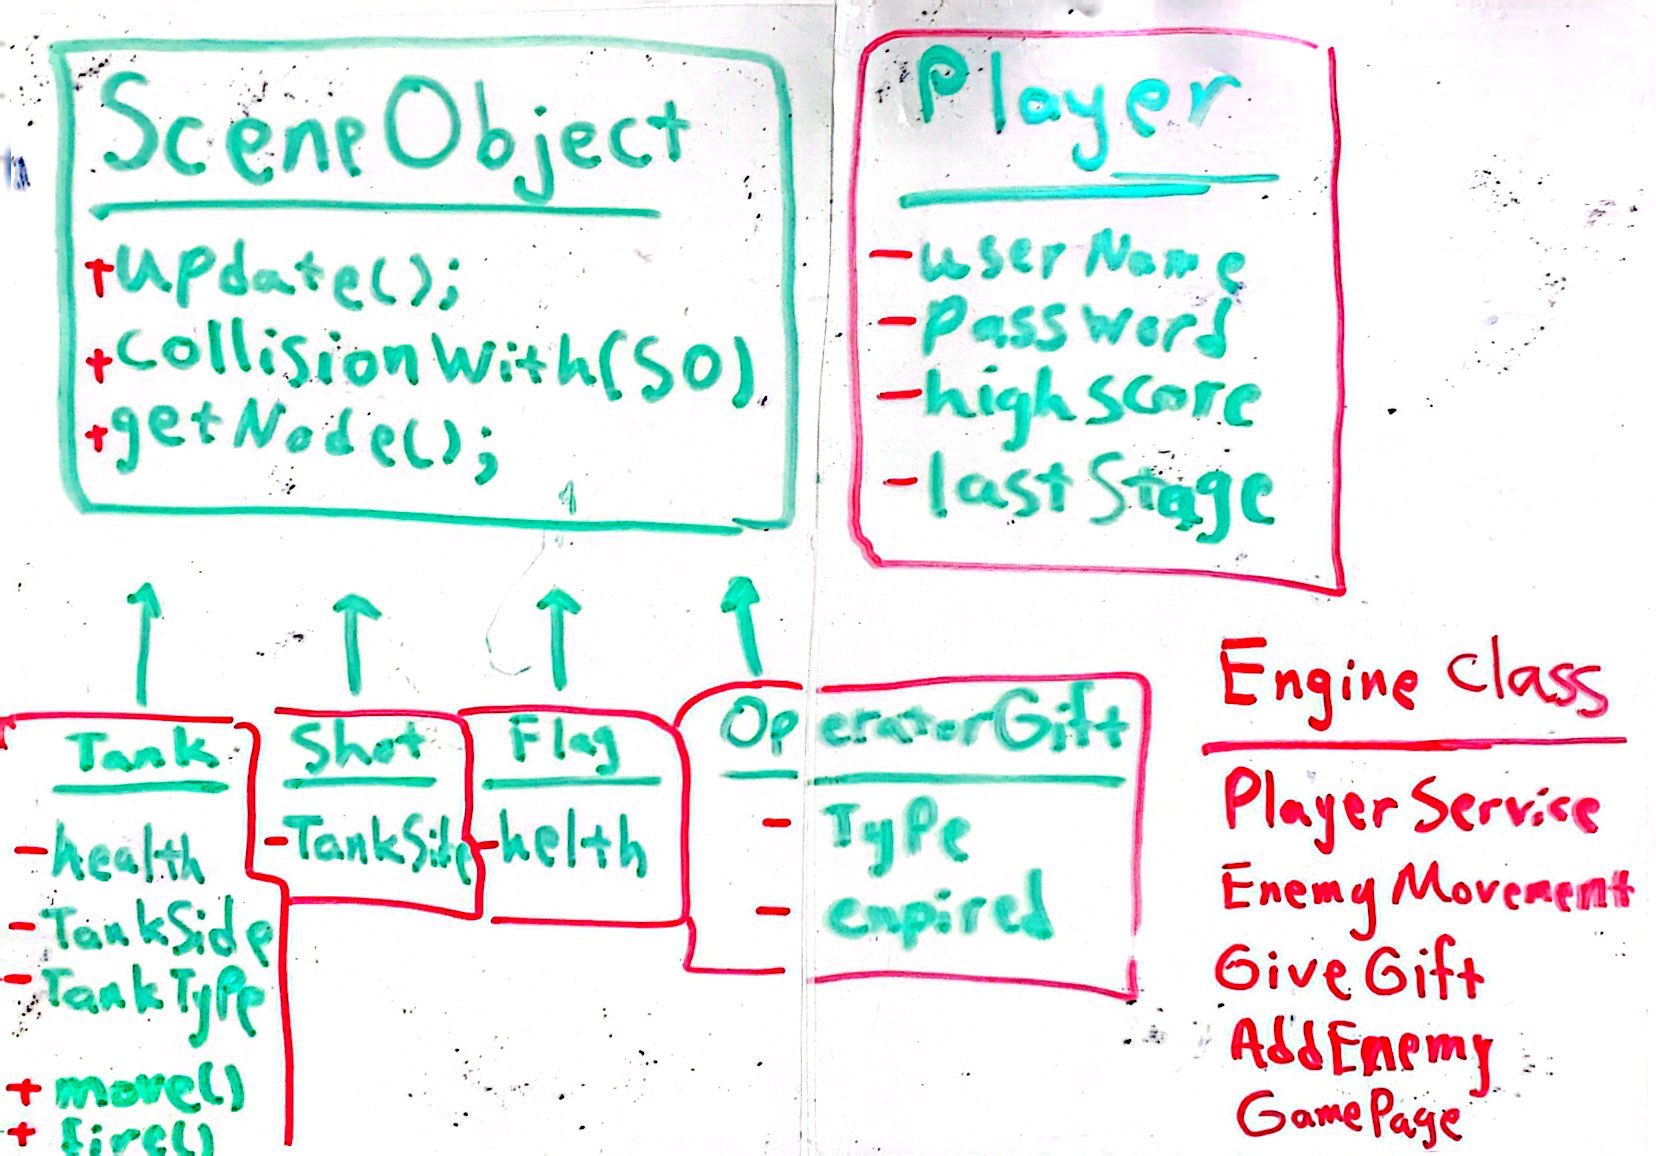 SceneObject
+update();
+collisionWith(SO)
+getNode();
Player
- userName
- Password
- highscore
- lastStage
Tank
- health
- TankSide
- TankType
+ move()
+ fire()
Shot
- TankSide
Flag
- helth
OperatorGift
- Type
- enpired
Engine Class
Player Service
Enemy Movement
Give Gift
AddEnemy
GamePage